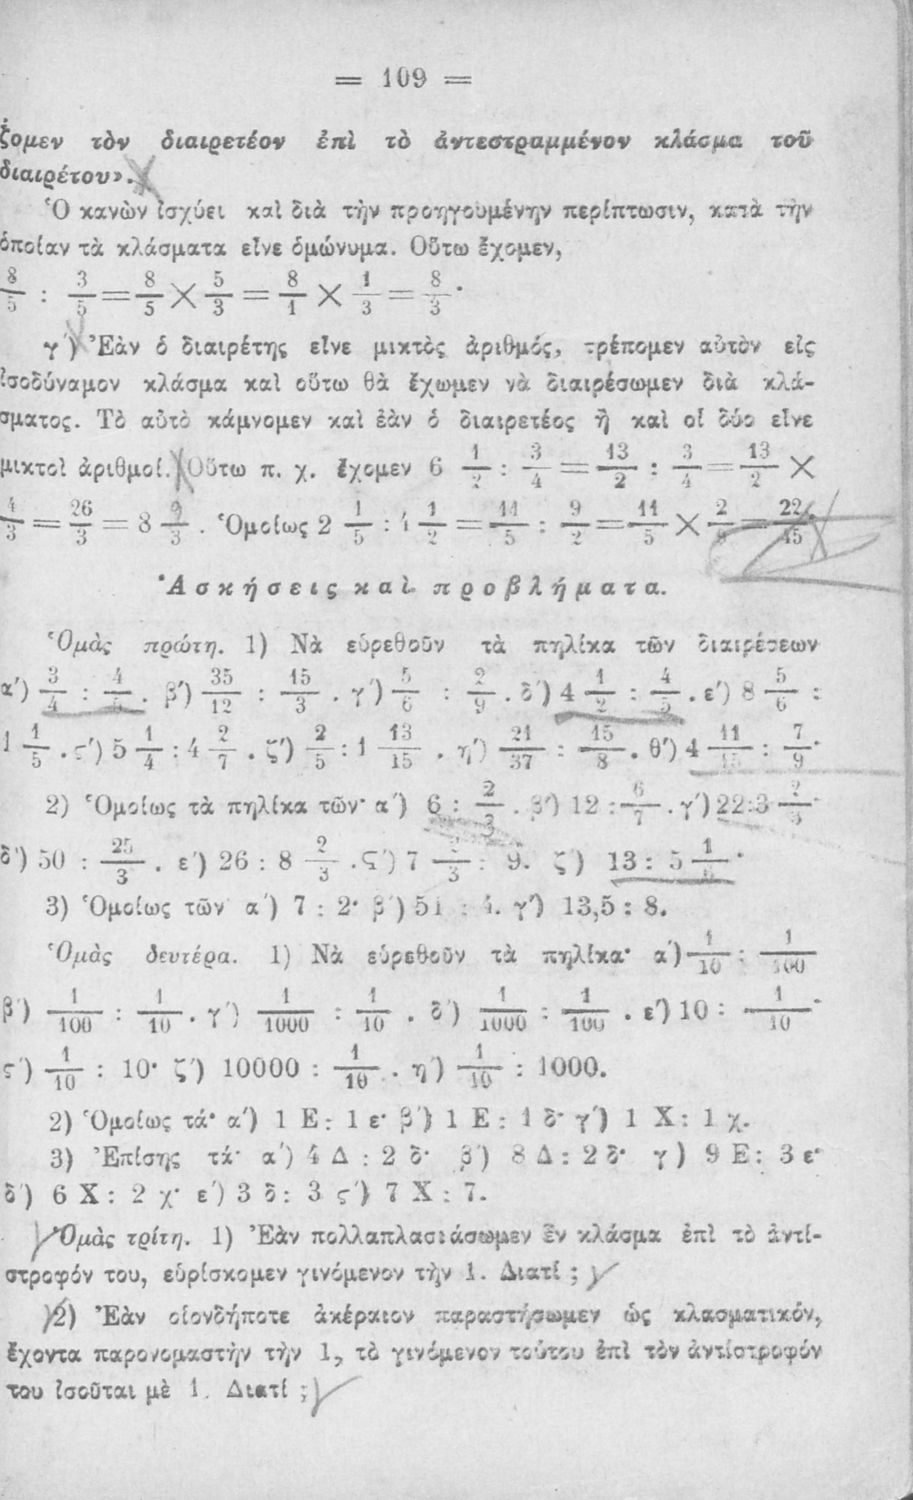 = 109 =
ζομεν τὸν διαιρετέον ἐπὶ τὸ ἀντεστραμμένον κλάσμα τοῦ
διαιρέτου».
Ὁ κανὼν ἰσχύει καὶ διὰ τὴν προηγουμένην περίπτωσιν, κατὰ τὴν
ὁποίαν τὰ κλάσματα εἶνε ὁμώνυμα. Οὕτω ἔχομεν,
8/5 : 3/5 = 8/5 × 5/3 = 8/1 × 1/3 = 8/3 .
γ΄) Ἐὰν ὁ διαιρέτης εἶνε μικτὸς ἀριθμός, τρέπομεν αὐτὸν εἰς
ἰσοδύναμον κλάσμα καὶ οὕτω θὰ ἔχωμεν νὰ διαιρέσωμεν διὰ κλά-
σματος. Τὸ αὐτὸ κάμνομεν καὶ ἐὰν ὁ διαιρετέος ἢ καὶ οἱ δύο εἶνε
μικτοὶ ἀριθμοί. Οὕτω π. χ. ἔχομεν 6 1/2 : 3/4 = 13/2 : 3/4 = 13/2 ×
4/3 = 26/3 = 8 2/3 . Ὁμοίως 2 1/5 : 4 1/2 = 11/5 : 9/2 = 11/5 × 2/9 = 22/45
Ἀσκήσεις καὶ προβλήματα.
Ὁμὰς πρώτη. 1) Νὰ εὑρεθοῦν τὰ πηλίκα τῶν διαιρέσεων
α΄) 3/4 : 4/5 . β΄) 35/12 : 15/3 . γ΄) 5/6 : 2/9 . δ΄) 4 1/2 : 4/5 . ε΄) 8 5/6 :
1 1/5 . ς΄) 5 1/4 : 4 2/7 . ζ΄) 2/5 : 1 13/15 . η΄) 21/37 : 15/8 . θ΄) 4 11/15 : 7/9 .
2) Ὁμοίως τὰ πηλίκα τῶν· α΄) 6 : 2/3 . β΄) 12 : 6/7 . γ΄) 22:3 2/3 .
δ΄) 50 : 25/3 . ε΄) 26 : 8 2/3 . ς΄) 7 2/3 : 9. ζ΄) 13 : 5 1/ .
3) Ὁμοίως τῶν α΄) 7 : 2· β΄) 51 : 4. γ΄) 13,5 : 8.
Ὁμὰς δευτέρα. 1) Νὰ εὑρεθοῦν τὰ πηλίκα· α΄) 1/10 : 1/100
β΄) 1/100 : 1/10 . γ΄) 1/1000 : 1/10 . δ΄) 1/1000 : 1/100 . ε΄) 10 : 1/10 ·
ς΄) 1/10 : 10· ζ΄) 10000 : 1/10 . η΄) 1/10 : 1000.
2) Ὁμοίως τά· α΄) 1 Ε : 1 ε· β΄) 1 Ε : 1 δ· γ΄) 1 Χ : 1 χ.
3) Ἐπίσης τά· α΄) 4 Δ : 2 δ· β΄) 8 Δ : 2 δ· γ) 9 Ε : 3 ε·
δ΄) 6 Χ : 2 χ· ε΄) 3 δ : 3 ς΄) 7 Χ : 7.
Ὁμὰς τρίτη. 1) Ἐὰν πολλαπλασιάσωμεν ἓν κλάσμα ἐπὶ τὸ ἀντί-
στροφόν του, εὑρίσκομεν γινόμενον τὴν 1. Διατί ;
2) Ἐὰν οἱονδήποτε ἀκέραιον παραστήσωμεν ὡς κλασματικόν,
ἔχοντα παρονομαστὴν τὴν 1, τὸ γινόμενον τούτου ἐπὶ τὸν ἀντίστροφόν
του ἰσοῦται μὲ 1. Διατί ;